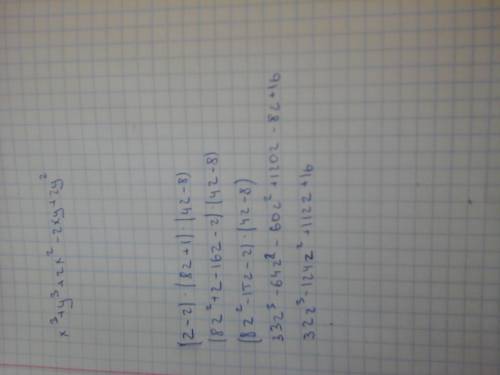 x³+y³+2x²-2xy+2y²
(z-2)·(8z+1)·(4z-8)
(8z²+z-16z-2)·(4z-8)
(8z²-15z-2)·(4z-8)
32z³-64z²-60z²+120z-8z+16
32z³-124z²+112z+16